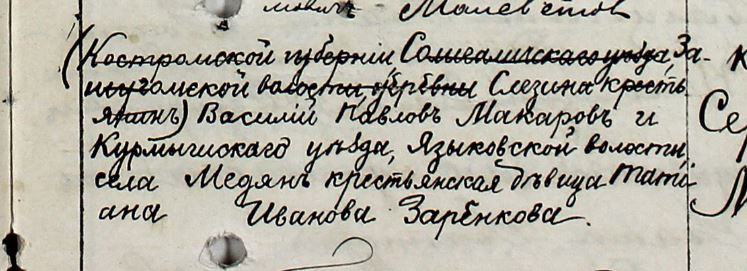 мовичъ Малев
(Костромской губернiи Солигаличскаго уѣзда За-
шугомской волости деревни Слезина кресть
янинъ) Василiй Павловъ Макаровъ и
Курмышскаго уѣзда, Языковской волости,
села Медянъ крестьянская дѣвица Татi
ана Иванова Зарѣнкова.